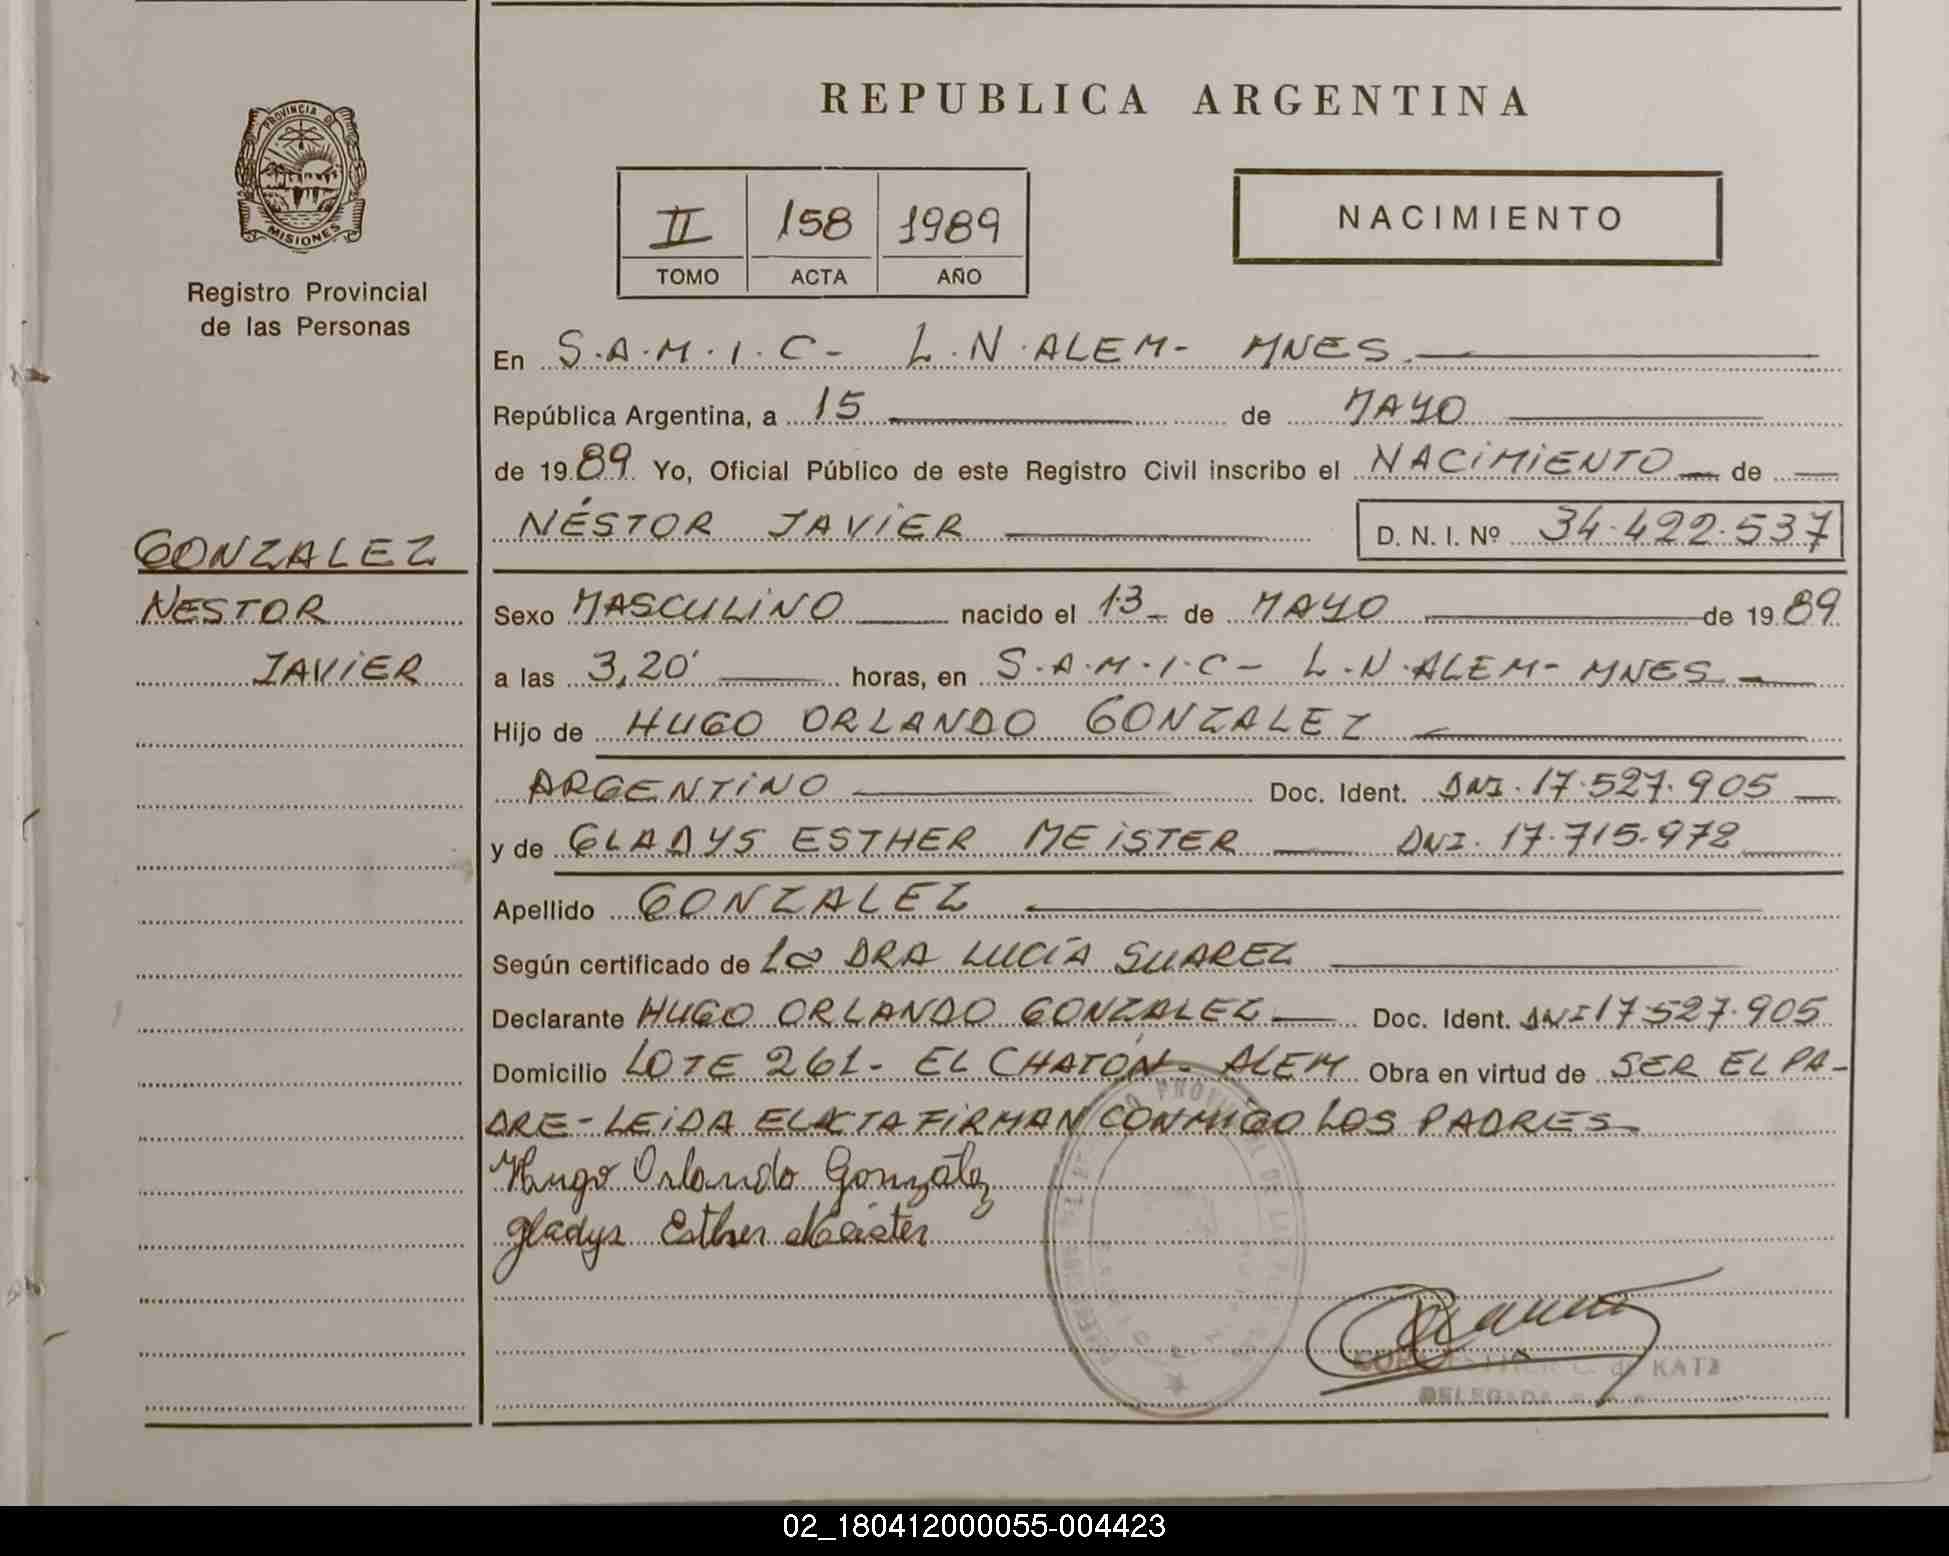 REPUBLICA ARGENTINA
PROVINCIA D
MISIONES
Registro Provincial
de las Personas
II 158 1989
TOMO ACTA AÑO
NACIMIENTO
En S.A.M.I.C- L.N.ALEM- MNES.
República Argentina, a 15 de MAYO
de 1989 Yo, Oficial Público de este Registro Civil inscribo el NACIMIENTO de
NÉSTOR JAVIER D. N. I. Nº 34.422.537
GONZALEZ
NESTOR
JAVIER
Sexo MASCULINO nacido el 13 de MAYO de 1989
a las 3,20' horas, en S.A.M.I.C- L.N.ALEM- MNES
Hijo de HUGO ORLANDO GONZALEZ
ARGENTINO Doc. Ident. DNI. 17.527.905
y de GLADYS ESTHER MEISTER DNI. 17.715.972
Apellido GONZALEZ
Según certificado de la DRA LUCÍA SUAREZ
Declarante HUGO ORLANDO GONZALEZ Doc. Ident. DNI 17.527.905
Domicilio LOTE 261- EL CHATÓN- ALEM Obra en virtud de SER EL PA-
DRE- LEIDA EL ACTA FIRMAN CONMIGO LOS PADRES
Hugo Orlando González
Gladys Esther Meister
de KATZ
DELEGADA
02_180412000055-004423